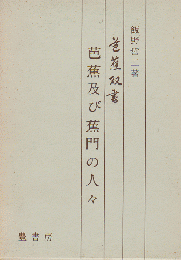 飯野哲二著
芭蕉双書
芭蕉及び蕉門の人々
豊書房